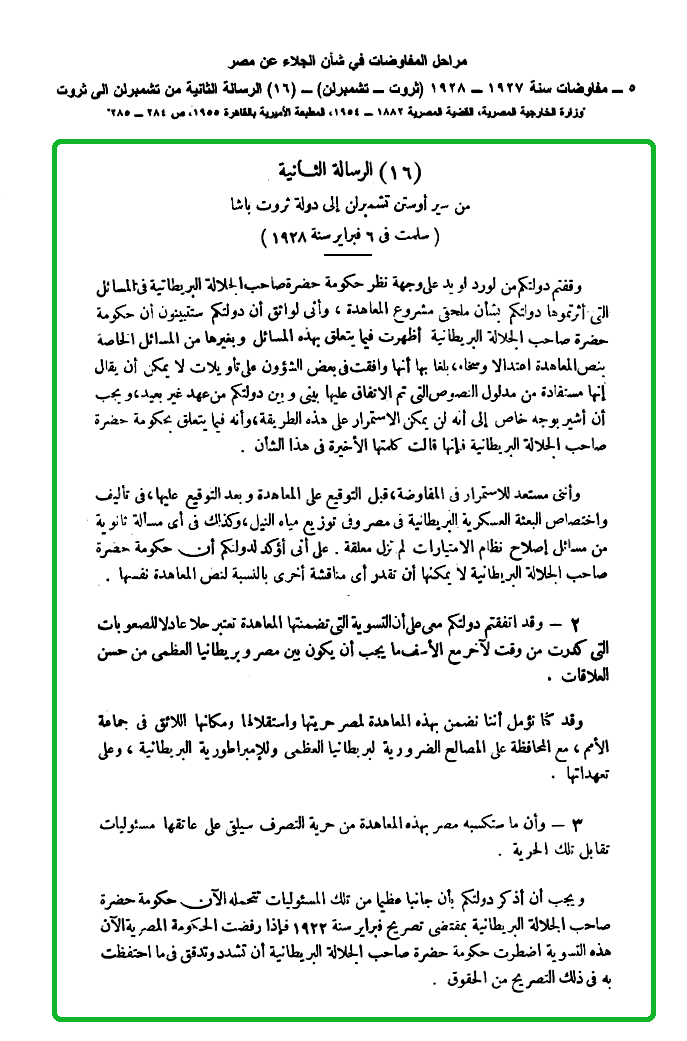 مراحل المفاوضات في شأن الجلاء عن مصر
٥ ــ مفاوضات سنة ١٩٢٧ ــ ١٩٢٨ (ثروت ــ تشمبرلن) ــ (١٦) الرسالة الثانية من تشمبرلن الى ثروت
"وزارة الخارجية المصرية، القضية المصرية ١٨٨٢ ــ ١٩٥٤، المطبعة الأميرية بالقاهرة ١٩٥٥، ص ٢٨٤ ــ ٢٨٥"
(١٦) الرسالة الثانية
من سير أوستن تشمبرلن إلى دولة ثروت باشا
( سلمت فى ٦ فبراير سنة ١٩٢٨ )
وقفتم دولتكم من لورد لويد على وجهة نظر حكومة حضرة صاحب الجلالة البريطانية فى المسائل
التى أثرتموها دولتكم بشأن ملحقى مشروع المعاهدة ، وأنى لواثق أن دولتكم ستتبينون أن حكومة
حضرة صاحب الجلالة البريطانية أظهرت فيما يتعلق بهذه المسائل وبغيرها من المسائل الخاصة
بنص المعاهدة اعتدالا وسخاء، بلغا بها أنها وافقت فى بعض الشؤون على تأويلات لا يمكن أن يقال
إنها مستفادة من مدلول النصوص التى تم الاتفاق عليها بينى وبين دولتكم من عهد غير بعيد، ويجب
أن أشير بوجه خاص إلى أنه لن يمكن الاستمرار على هذه الطريقة، وأنه فيما يتعلق بحكومة حضرة
صاحب الجلالة البريطانية فإنها قالت كلمتها الأخيرة فى هذا الشأن .
وأننى مستعد للاستمرار فى المفاوضة، قبل التوقيع على المعاهدة وبعد التوقيع عليها، فى تأليف
واختصاص البعثة العسكرية البريطانية فى مصر وفى توزيع مياه النيل، وكذلك فى أى مسألة ثانوية
من مسائل إصلاح نظام الامتيازات لم تزل معلقة . على أنى أؤكد لدولتكم أن حكومة حضرة
صاحب الجلالة البريطانية لا يمكنها أن تقدو أى مناقشة أخرى بالنسبة لنص المعاهدة نفسها .
٢ – وقد اتفقتم دولتكم معى على أن التسوية التى تضمنتها المعاهدة تعتبر حلا عادلا للصعوبات
التى كدرت من وقت لآخر مع الأسف ما يجب أن يكون بين مصر وبريطانيا العظمى من حسن
العلاقات .
وقد كنا نؤمل أننا نضمن بهذه المعاهدة لمصر حريتها واستقلالها ومكانها اللائق فى جماعة
الأمم ، مع المحافظة على المصالح الضرورية لبريطانيا العظمى وللإمبراطورية البريطانية ، وعلى
تعهداتها .
٣ – وأن ما ستكسبه مصر بهذه المعاهدة من حرية التصرف سيلقى على عاتقها مسئوليات
تقابل تلك الحرية .
ويجب أن أذكر دولتكم بأن جانبا عظيما من تلك المسئوليات تتحمله الآن حكومة حضرة
صاحب الجلالة البريطانية بمقتضى تصريح فبراير سنة ١٩٢٢ فإذا رفضت الحكومة المصرية الآن
هذه التسوية اضطرت حكومة حضرة صاحب الجلالة البريطانية أن تشدد وتدقق فى ما احتفظت
به فى ذلك التصريح من الحقوق .